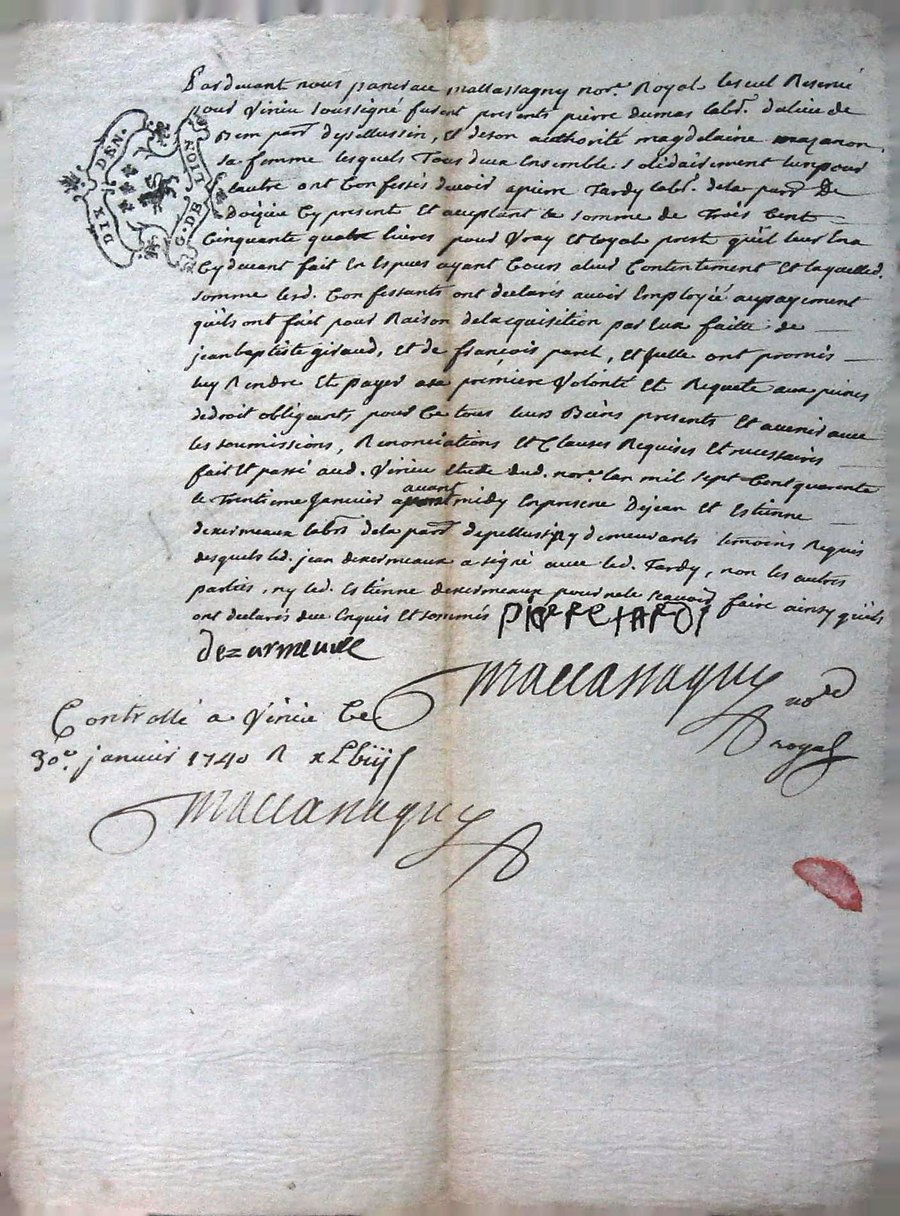 Pardevant nous pancrace mattassagny nore. Royal lescul Reservé
pour Virieu soussigné furent presents pierre dumas labr. dulieu de
Bem parr. depellussin, et deson authorité magdelaine mazanon
sa femme lesquels tous deux Ensemble solidairement lun pour
lautre ont Confessés devoir apierre Tardy labr. dela parr. De
Doizieu Cy present et acceptant la somme de Trois Cent
Cinquante quatre livres pour Vray et loyal prest quil leur En a
Cy devant fait En Espèces ayant Cours aleur Contentement et laquelled.
somme lesd. Confessants ont declarés avoir Employée aupayement
quils ont fait pour Raison delacquisition par Eux faitte de
jean baptiste giraud, et de françois paret, et jcelle ont promis
luy Rendre et payer asa première Volonté et Requete aux peines
dedroit obligeants pour Ce tous leurs Biens presents et avenir avec
les soumissions, Renonciations et Clauses Requises et necessaires
fait et passé aud. Virieu Etude dud. nore. lan mil sept Cent quarente
le Trentieme Janvier avant midy En presence De jean et Estienne
dezermeaux labrs dela parr depellussin y demeurants temoins Requis
desquels led. jean dezermeaux a signé avec led. Tardy, non les autres
parties, ny led. Estienne dezermeaux pour ne le scavoir faire ainsy quils
ont declarés due Enquis et sommés PIERRE TARDI
dezurmeure
Maccassaguy nore
royal
Controllé a Virieu Ce
30e. janvier 1740 R
Maccassaguy
DIX DEN.
G. DE